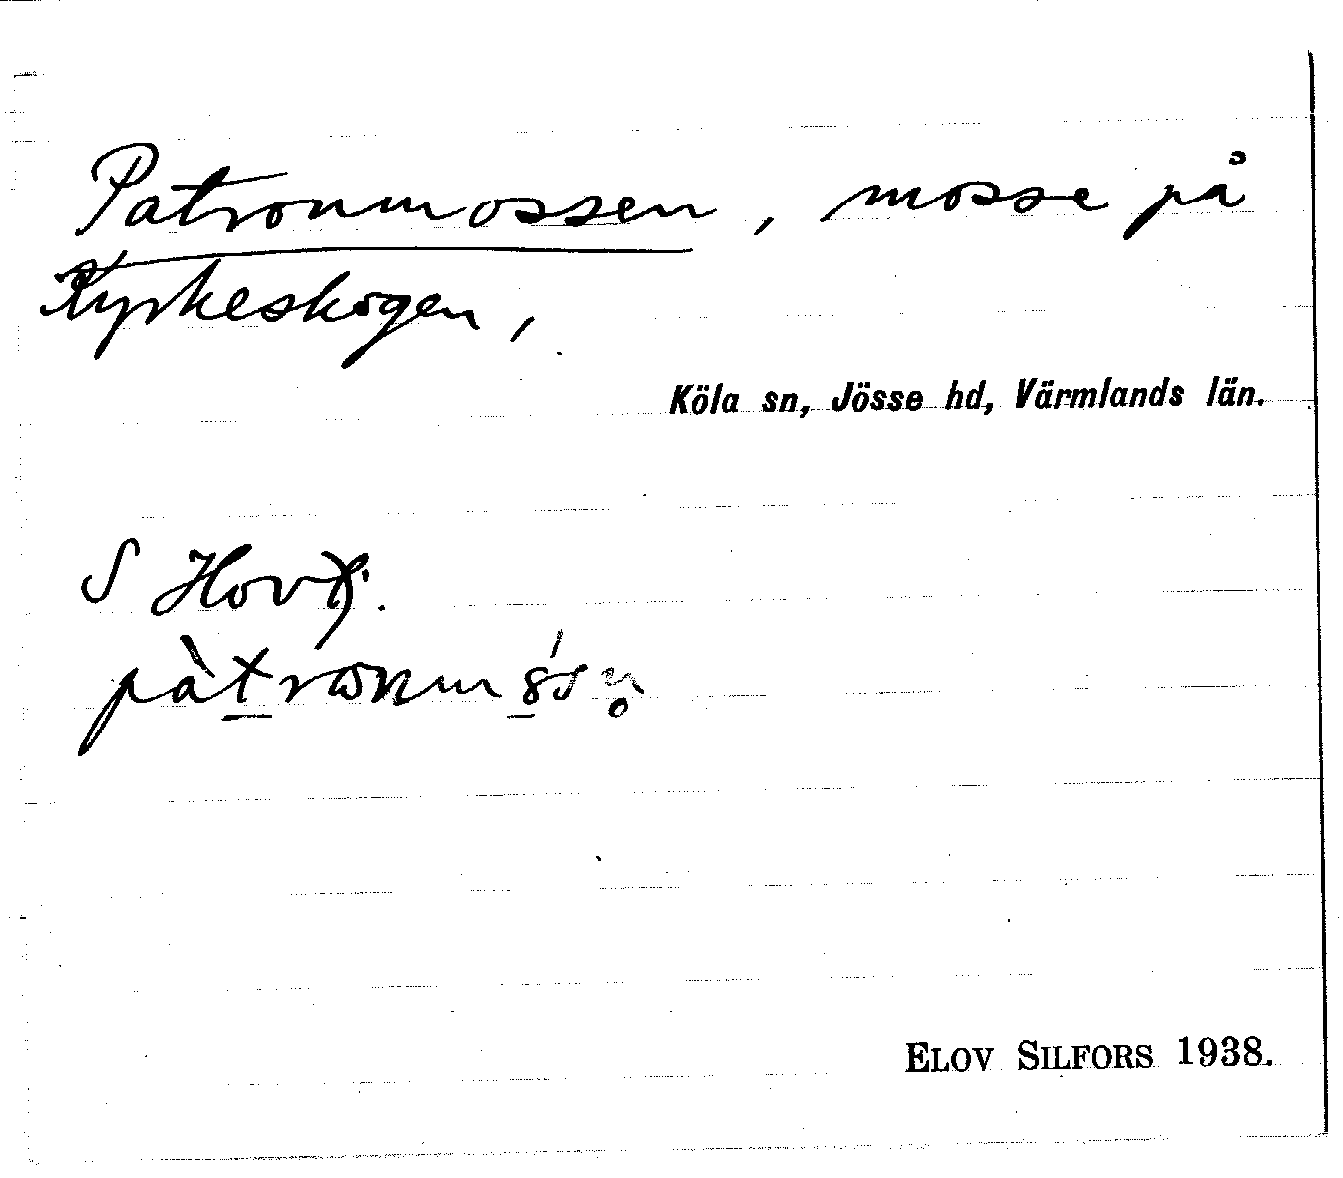 Patronmossen, mosse på
Kyrkeskogen,
Köla sn, Jösse hd, Värmlands län.
S
ELOV SILFORS 1938.